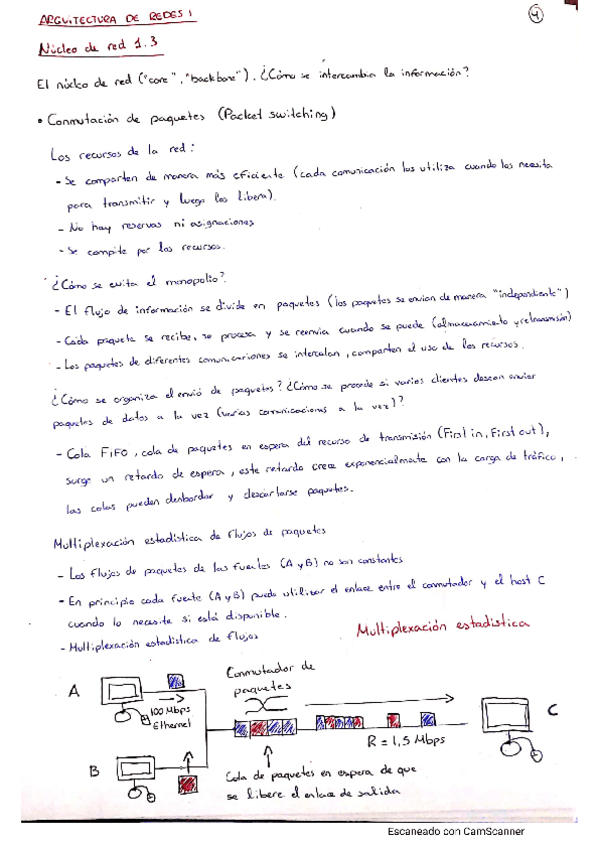 ARQUITECTURA DE REDES 1
4
Núcleo de red 1.3
El núcleo de red ("core", "backbone"). ¿Cómo se intercambia la información?
• Conmutación de paquetes (Packet switching)
Los recursos de la red:
- Se comparten de manera más eficiente (cada comunicación los utiliza cuando los necesita
para transmitir y luego los libera).
- No hay reservas ni asignaciones
- Se compite por los recursos.
¿Cómo se evita el monopolio?
- El flujo de información se divide en paquetes (los paquetes se envían de manera "independiente")
- Cada paquete se recibe, se procesa y se reenvia cuando se puede (almacenamiento y retransmisión)
- Los paquetes de diferentes comunicaciones se intercalan, comparten el uso de los recursos.
¿Cómo se organiza el envió de paquetes? ¿Cómo se procede si varios clientes desean enviar
paquetes de datos a la vez (varias comunicaciones a la vez)?
- Cola FIFO, cola de paquetes en espera del recurso de transmisión (First in, First out),
surge un retardo de espera, este retardo crece exponencialmente con la carga de tráfico,
las colas pueden desbordar y descartarse paquetes.
Multiplexación estadística de flujos de paquetes
- Los flujos de paquetes de las fuentes (A y B) no son constantes
- En principio cada fuente (A y B) puede utilizar el enlace entre el conmutador y el host C
cuando lo necesite si está disponible.
- Multiplexación estadística de flujos
Multiplexación estadística
Conmutador de
paquetes
A
100 Mbps
Ethernet
C
R = 1,5 Mbps
B
Cola de paquetes en espera de que
se libere el enlace de salida
Escaneado con CamScanner